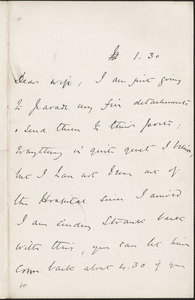 1.30
Dear wife, I am just going
to parade my fire detachments
& send them to their posts;
Everything is quite quiet I believe
but I have not been out of
the Hospital since I arrived
I am sending back
with this, you can let him
come back about 4.30 if you